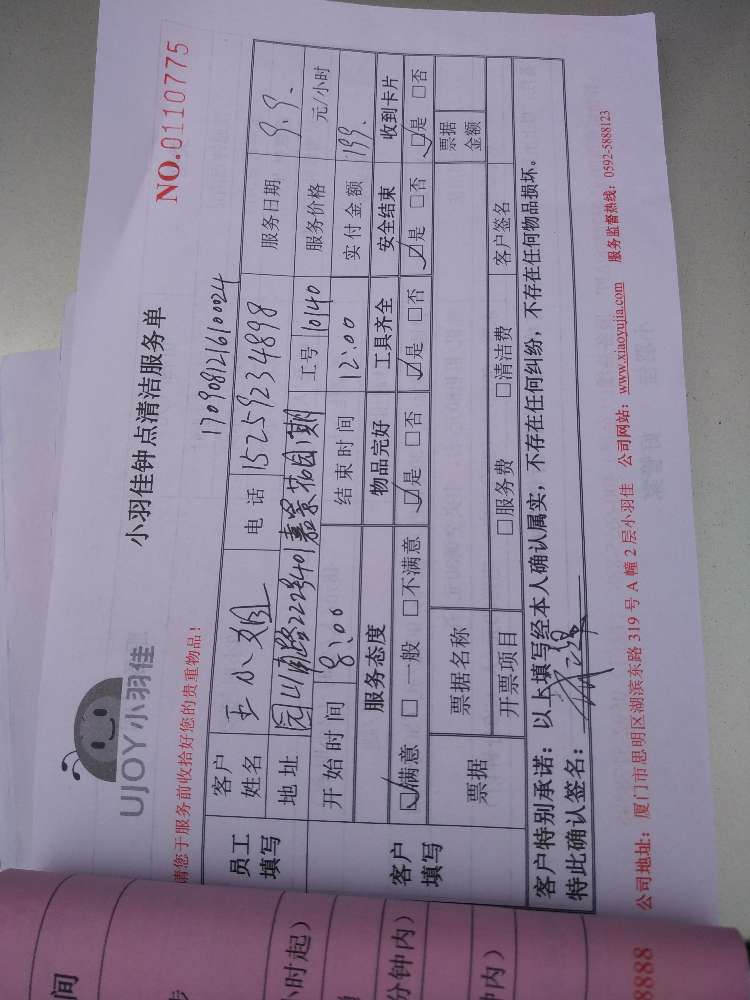 UJOY小羽佳
小羽佳钟点清洁服务单
NO.0110775
请您于服务前收拾好您的贵重物品!
170908121610024
员工填写
客户姓名 王小姐 电话 15259234898 服务日期 9.9.
地址 园山南路222号401嘉景花园1期 工号 10140 服务价格 元/小时
开始时间 8:00 结束时间 12:00 实付金额 199.
客户填写
服务态度 物品完好 工具齐全 安全结束 收到卡片
☑满意 □一般 □不满意 ☑是 □否 ☑是 □否 ☑是 □否 ☑是 □否
票据 票据名称 票据金额
开票项目 □服务费 □清洁费 客户签名
客户特别承诺:以上填写经本人确认属实,不存在任何纠纷,不存在任何物品损坏。
特此确认签名:
公司地址:厦门市思明区湖滨东路 319 号 A 幢 2 层小羽佳 公司网站:www.xiaoyujia.com 服务监督热线:0592-5888123
间
小时起)
分钟内)
钟内)
8888